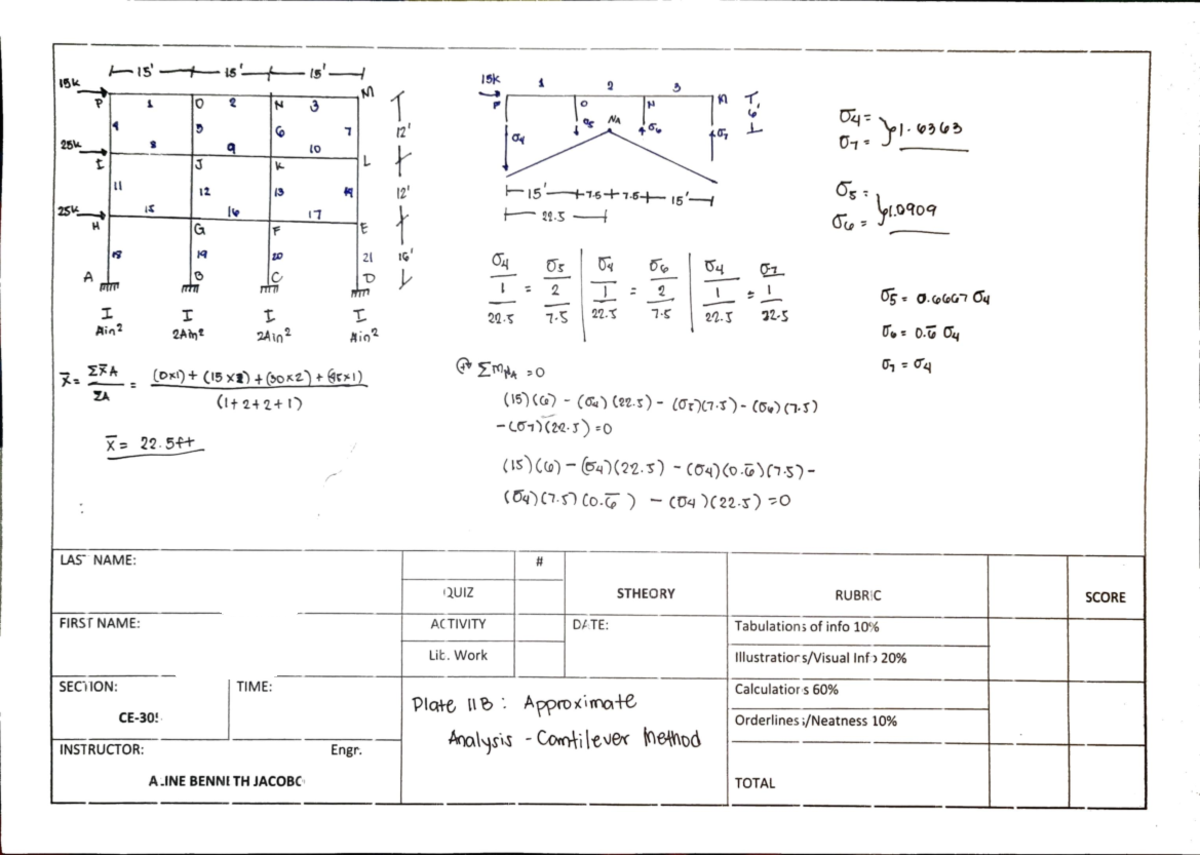 15' 15' 15'
15k
P 1 O 2 N 3 M
4 5 6 7 12'
25k 8 9 10
I J K L
11 12 13 14 12'
25k 15 16 17
H G F E
18 19 20 21 16'
A B C D
I I I I
Ain² 2Ain² 2Ain² Ain²
x̄ = Σx̄A / ΣA = (0x1) + (15x2) + (30x2) + (45x1) / (1+2+2+1)
x̄ = 22.5ft
15k 1 2 3
P O N M
σ4 σ5 NA σ6 σ7 6'
15' 7.5 7.5 15'
22.5
σ4/1/22.5 = σ5/2/7.5 | σ4/1/22.5 = σ6/2/7.5 | σ4/1/22.5 = σ7/1/22.5
ΣM NA = 0
(15)(6) - (σ4)(22.5) - (σ5)(7.5) - (σ6)(7.5)
-(σ7)(22.5) = 0
(15)(6) - (σ4)(22.5) - (σ4)(0.6̄)(7.5) -
(σ4)(7.5)(0.6̄) - (σ4)(22.5) = 0
σ4 =
σ7 = } 1.6363
σ5 =
σ6 = } 1.0909
σ5 = 0.6667 σ4
σ6 = 0.6̄ σ4
σ7 = σ4
LAST NAME:
#
QUIZ
STHEORY
RUBRIC
SCORE
FIRST NAME:
ACTIVITY
DATE:
Tabulations of info 10%
Lit. Work
Illustrations/Visual Info 20%
SECTION:
TIME:
CE-30
Plate 11B: Approximate
Analysis - Cantilever Method
Calculations 60%
Orderliness/Neatness 10%
INSTRUCTOR: Engr.
ALINE BENNETH JACOBO
TOTAL